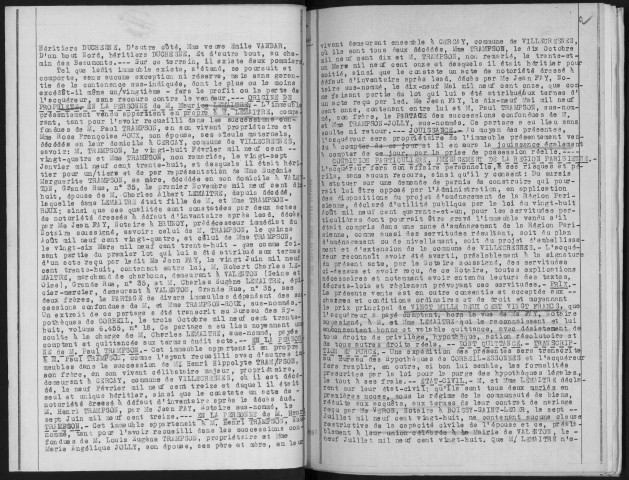 Héritiers DUCHESNE, D'autre côté, Mme veuve Emile VANDAR,
D'un bout Nord, héritiers DUCHESNE, Et d'autre bout, au che-
min des Beaumonts.--- Sur ce terrain, il existe deux pommiers.
Tel que ledit immeuble existe, s'étend, se poursuit et
comporte, sans aucune exception ni réserve, mais sans garan-
tie de la contenance sus-indiquée, dont le plus ou le moins
excédât-il même un/vingtième - fera le profit ou la perte de
l'acquéreur, sans recours contre le vendeur.--- ORIGINE DE
PROPRIETE. EN LA PERSONNE DE M. Maurice LEMAITRE. - L'immeuble
présentement vendu appartient en propre à M. LEMAITRE, compa-
rant, tant pour l'avoir recueilli dans les successions con-
fondues de M. Paul TRAMPSON, en son vivant propriétaire et
Mme Rose Françoise ROUX, son épouse, ses aïeuls maternels,
décédés en leur domicile à CERCAY, commune de VILLECRESNES,
savoir: M. TRAMPSON, le vingt-huit Février mil neuf cent
vingt-quatre et Mme TRAMPSON, non remariée, le vingt-sept
Janvier mil neuf cent trente-huit, et desquels il était héri-
tier pour un/tiers et de par représentation de Mme Eugénie
Marguerite TRAMPSON, sa mère, décédée en son domicile à VALEN-
TON, Grande Rue, n° 35, le premier Novembre mil neuf cent dix-
huit, épouse de M. Charles Albert LEMAITRE, depuis décédé,
laquelle dame LEMAITRE était fille de M. et Mme TRAMPSON-
ROUX; ainsi que ces qualités sont constatées par deux actes
de notoriété dressés à défaut d'inventaire après leur décès,
par Me Jean FAY, notaire à BRUNOY, prédécesseur immédiat du
Notaire soussigné, savoir: celui de M. TRAMPSON, le quinze
Août mil neuf cent vingt-quatre, et celui de Mme TRAMPSON,
le vingt-six Mars mil neuf cent trente-huit - que comme fai-
sant partie du premier lot qui lui a été attribué aux termes
d'un acte reçu par ledit Me Jean FAY, le vingt Juin mil neuf
cent trente-huit, contenant entre lui, M. Robert Charles LE-
MAITRE, marchand de charbons, demeurant à VALENTON (Seine et
Oise), Grande Rue, n° 35, et M. Charles Eugène LEMAITRE, épi-
cier-mercier, demeurant à VALENTON, Grande Rue, n° 35, ses
deux frères, le PARTAGE de divers immeubles dépendant des suc-
cessions confondues de M. et Mme TRAMPSON-ROUX, sus-nommés.-
Un extrait de ce partage a été transcrit au Bureau des Hy-
pothèques de CORBEIL, le trois Octobre mil neuf cent trente-
huit, volume 6.455, n° 18. Ce partage a eu lieu moyennant une
soulte à la charge de M. Charles LEMAITRE, sus-nommé, payée
comptant et quittancée aux termes dudit acte.--- EN LA PERSONNE
DE M. Paul TRAMPSON.- Cet immeuble appartenait en propre
à M. Paul TRAMPSON, comme l'ayant recueilli avec d'autres im-
meubles dans la succession de M. Henri Hippolyte TRAMPSON,
son frère, en son vivant célibataire majeur, propriétaire,
demeurant à CERCAY, commune de VILLECRESNES, où il est décé-
dé, le neuf Février mil neuf cent treize et duquel il était
seul et unique héritier, ainsi que le constate un acte de
notoriété dressé à défaut d'inventaire après le décès dud.
M. Henri TRAMPSON, par Me Jean FAY, notaire sus-nommé, le
sept Juin mil neuf cent treize.--- EN LA PERSONNE DE M. Henri
TRAMPSON.- Cet immeuble appartenait à M. Henri TRAMPSON, sus-
nommé, tant pour l'avoir recueilli dans les successions con-
fondues de M. Louis Eugène TRAMPSON, propriétaire et Mme
Marie Angélique JOLLY, son épouse, ses père et mère, en leur
2
vivant demeurant ensemble à CERCAY, commune de VILLECRESNES,
où ils sont tous deux décédés, Mme TRAMPSON, le dix Octobre
mil neuf cent dix et M. TRAMPSON, non remarié, le trente-et-
un Mars mil neuf cent onze et desquels il était héritier pour
moitié, ainsi que le constate un acte de notoriété dressé à
défaut d'inventaire après leur décès, par Me Jean FAY, no-
taire sus-nommé, le dix-neuf Mai mil neuf cent onze, que com-
me faisant partie du lot qui lui a été attribué aux termes d'
un acte reçu par led. Me Jean FAY, le dix-neuf Mai mil neuf
cent onze, contenant entre lui et M. Paul TRAMPSON, sus-nom-
mé, son frère, le PARTAGE des successions confondues de M.
et Mme TRAMPSON-JOLLY, sus-nommés. Ce partage a eu lieu sans
soulte ni retour.--- JOUISSANCE.- Au moyen des présentes,
l'acquéreur sera propriétaire de l'immeuble présentement ven-
du à compter de ce jour et il en aura la jouissance également
à compter de ce jour, par la prise de possession réelle.---
CONDITION PARTICULIERE, AMENAGEMENT DE LA REGION PARISIENNE.-
L'acquéreur fera son affaire personnelle, à ses risques et pé-
rils, sans aucun recours, ainsi qu'il y consent: Du sursis
à statuer sur une demande de permis de construire qui pour-
rait lui être opposé par l'Administration, en application
des dispositions du projet d'aménagement de la Région Pari-
sienne, déclaré d'utilité publique par la loi du vingt-huit
Août mil neuf cent quarante-et-un, pour les servitudes par-
ticulières dont pourrait être grevé l'immeuble vendu s'il
était compris dans une zone d'aménagement de la Région Pari-
sienne, comme aussi des servitudes résultant, soit du plan
d'aménagement ou de nivellement, soit du projet d'embellisse-
ment et d'extension de la commune de VILLECRESNES.- L'acqué-
reur reconnaît avoir été averti, préalablement à la signature
du présent acte, par le Notaire soussigné, des servitudes
ci-dessus et avoir reçu, de ce Notaire, toutes explications
nécessaires et notamment avoir entendu lecture des textes,
décrets-lois et règlement prévoyant ces servitudes.- PRIX.-
La présente vente est en outre consentie et acceptée aux
charges et conditions ordinaires et de droit et moyennant
le prix principal de VINGT MILLE HUIT CENT VINGT FRANCS, que
l'acquéreur a payé comptant, hors la vue de Me FAY, notaire
soussigné, à M. et Mme LEMAITRE qui le reconnaissent et lui
en consentent bonne et valable quittance, avec désistement de
tous droits de privilège, hypothèque, action résolutoire et
de tous autres droits réels.--- DONT QUITTANCE.- TRANSCRIP-
TION ET PURGE.- Une expédition des présentes sera transcrite
au Bureau des Hypothèques de CORBEIL-ESSONNES et l'acquéreur
fera remplir, en outre, si bon lui semble, les formalités
prescrites par la loi pour la purge des hypothèques légales,
le tout à ses frais.--- ETAT-CIVIL.- M. et Mme LEMAITRE décla-
rent sur leur état-civil: qu'ils sont tous deux mariés en
premières noces, sous le régime de la communauté de biens,
réduite aux acquêts, aux termes de leur contrat de mariage
reçu par Me notaire à BOISSY-SAINT-LEGER, le sept
Juillet mil neuf cent vingt-huit, ne contenant aucune clause
restrictive de la capacité civile de l'épouse et ce, préala-
blement à leur union célébrée à la Mairie de VALENTON, le
neuf Juillet mil neuf cent vingt-huit. Que M/ LEMAITRE n'e-